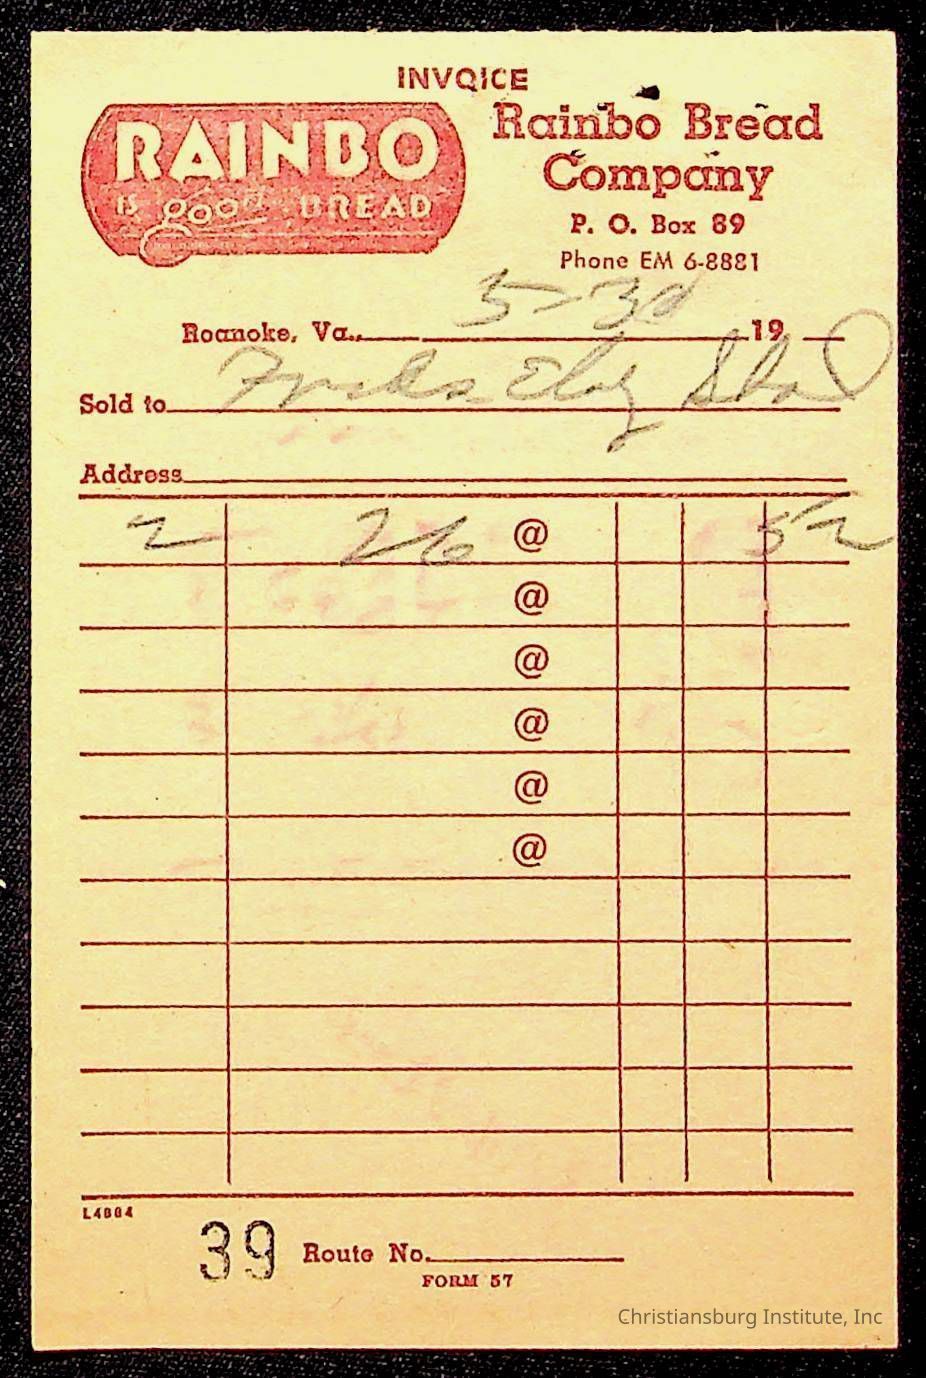 INVOICE
RAINBO
IS good BREAD
Rainbo Bread
Company
P. O. Box 89
Phone EM 6-8881
5-30
Roanoke, Va., 19
Sold to
Address
2 26 @ 52
@
@
@
@
@
L4884
39 Route No.
FORM 57
Christiansburg Institute, Inc